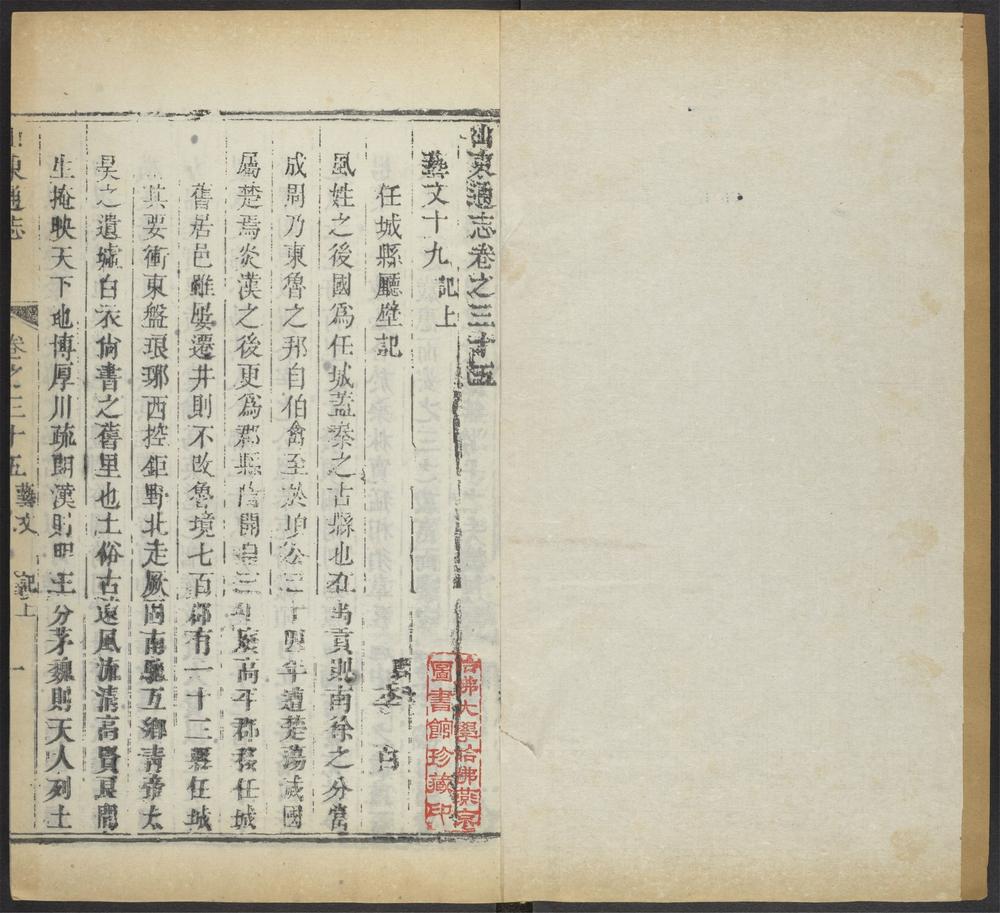 山東通志卷之三十五
藝文十九 記上
任城縣廳壁記
唐 李 白
風姓之後國爲任城蓋秦之古縣也在禹貢則南徐之分當
成周乃東魯之邦自伯禽至於頃公三十四年遭楚蕩滅國
屬楚焉炎漢之後更爲郡縣隋開皇三年廢高平郡移任城
舊居邑雖屢遷井則不改魯境七百郡有一十二縣任城
其要衝東盤琅琊西控鉅野北走厥國南馳互鄉靑帝太
昊之遺墟白衣尚書之舊里也土俗古遠風流清高賢良間
生掩映天下地博厚川疏朗漢則明王分茅魏則天人列土
山東通志
卷之三十五 藝文 記上
一
哈佛大學哈佛燕京
圖書館珍藏印